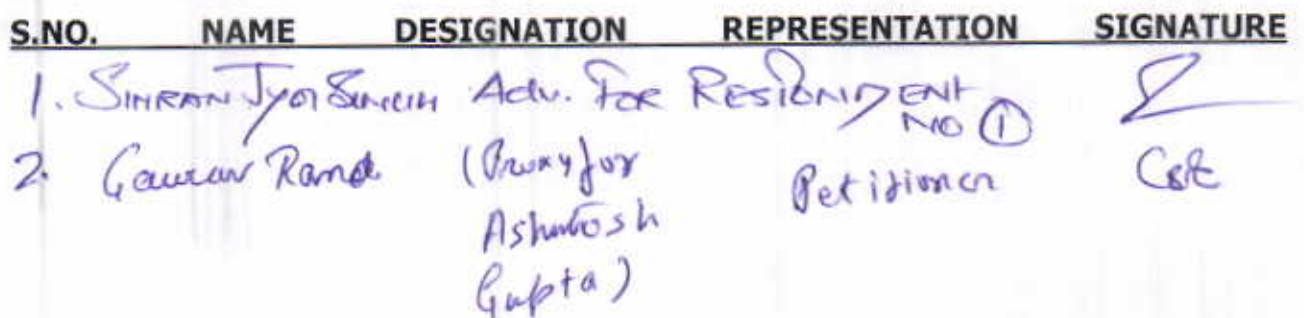 S.NO. NAME DESIGNATION REPRESENTATION SIGNATURE
1. SIMRAN Jyot SINGH Adv. For RESPONDENT
NO 1
2. Gaurav Rana (Proxy for Petitioner
Ashutosh
Gupta)